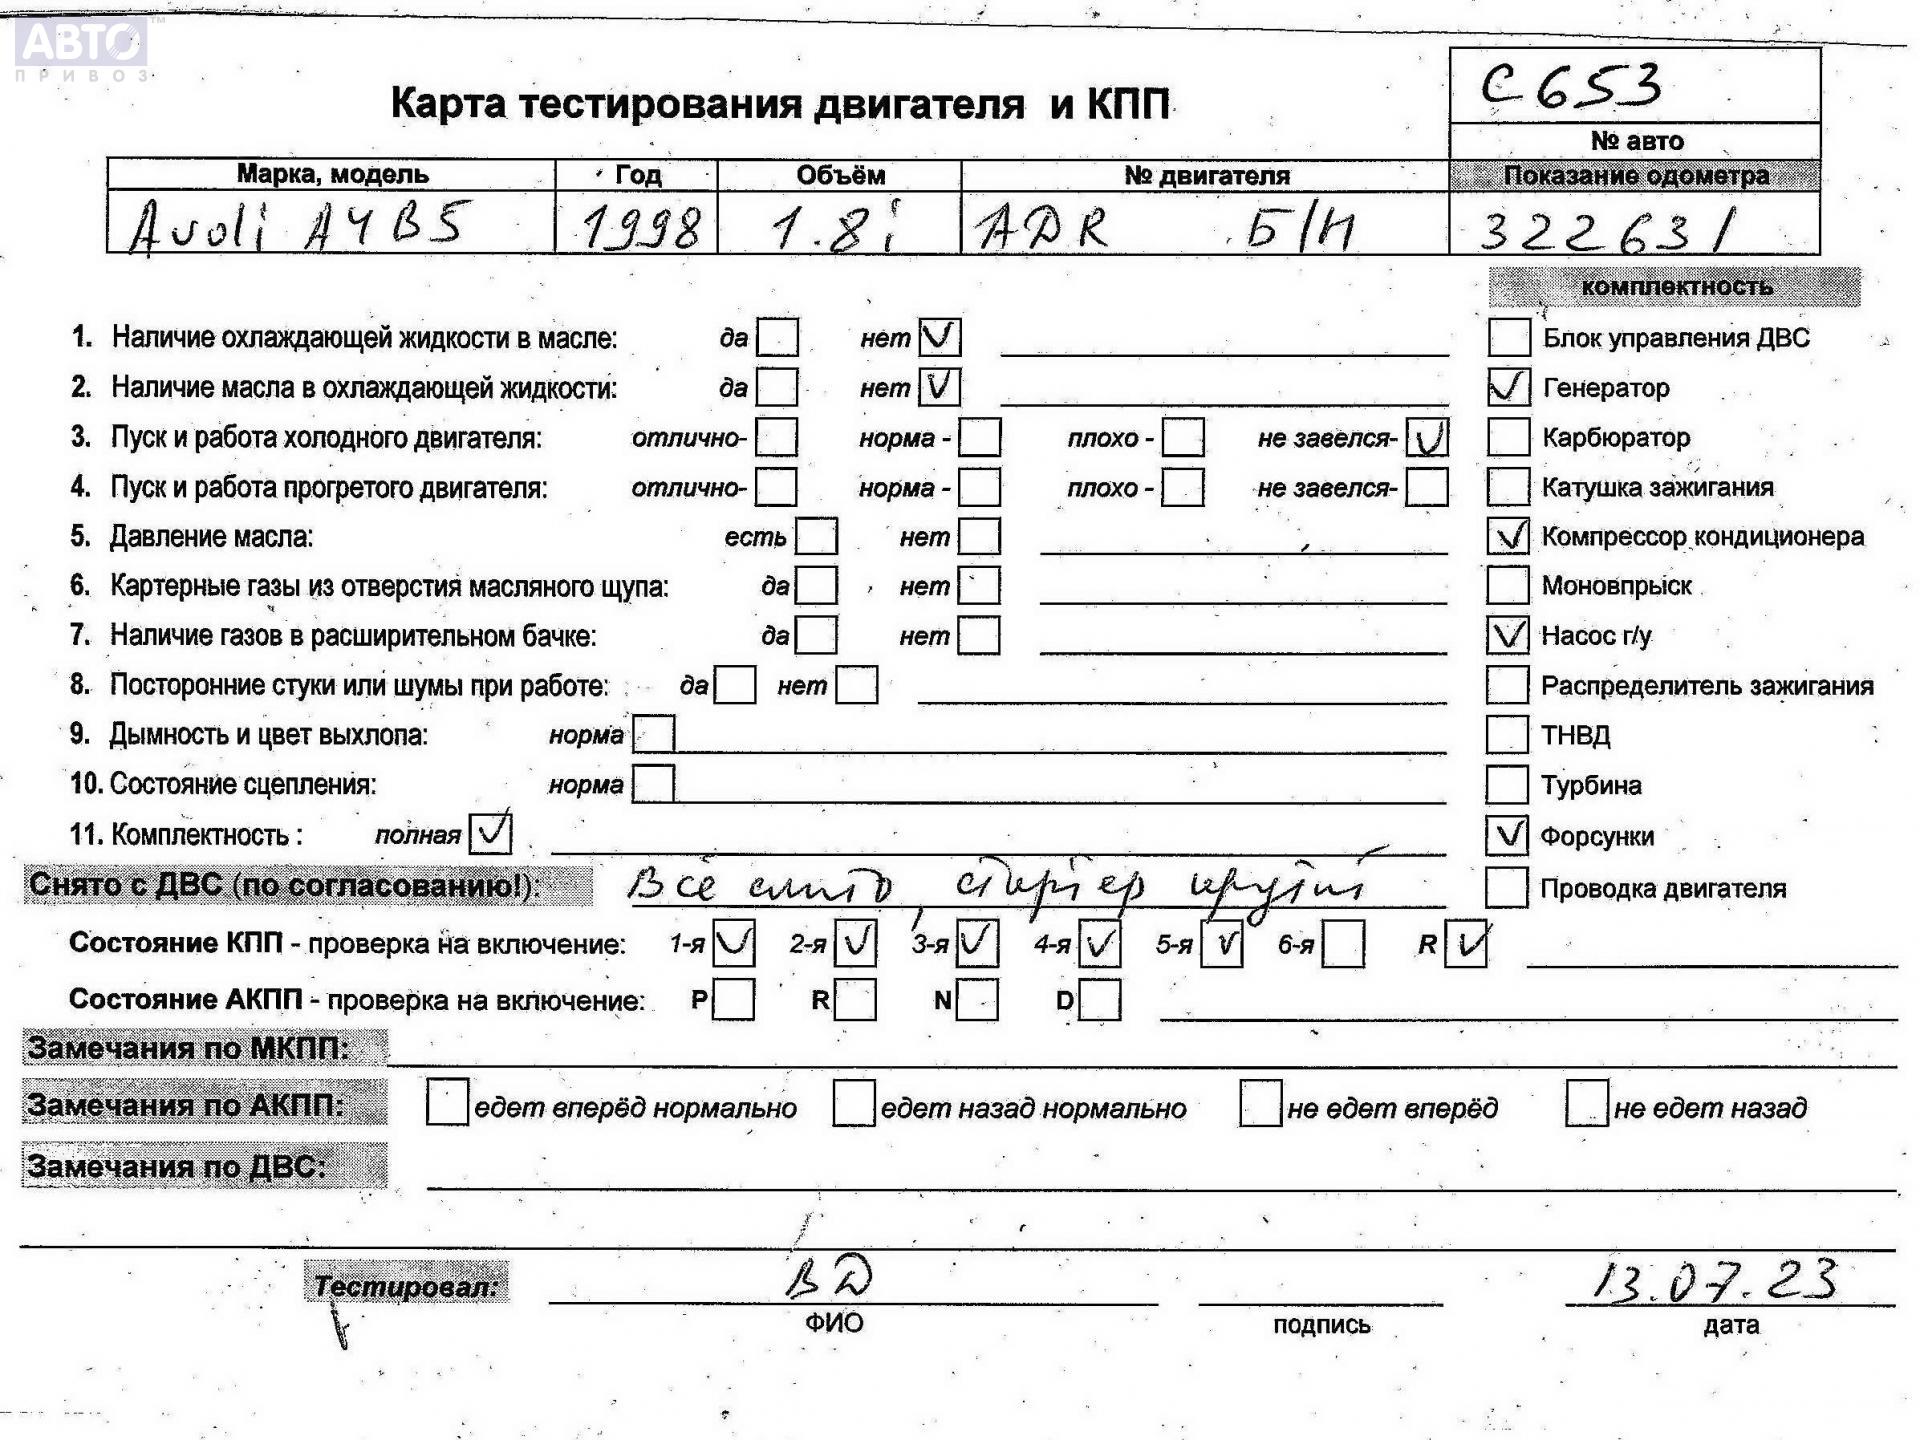 АВТО™
ПРИВОЗ
С653
Карта тестирования двигателя и КПП
№ авто
Марка, модель Год Объём № двигателя Показание одометра
Audi A4B5 1998 1.8i ADR Б/Н 322631
комплектность
1. Наличие охлаждающей жидкости в масле: да нет ✓ Блок управления ДВС
2. Наличие масла в охлаждающей жидкости: да нет ✓ ✓ Генератор
3. Пуск и работа холодного двигателя: отлично- норма - плохо - не завелся- ✓ Карбюратор
4. Пуск и работа прогретого двигателя: отлично- норма - плохо - не завелся- Катушка зажигания
5. Давление масла: есть нет ✓ Компрессор кондиционера
6. Картерные газы из отверстия масляного щупа: да нет Моновпрыск
7. Наличие газов в расширительном бачке: да нет ✓ Насос г/у
8. Посторонние стуки или шумы при работе: да нет Распределитель зажигания
9. Дымность и цвет выхлопа: норма ТНВД
10. Состояние сцепления: норма Турбина
11. Комплектность : полная ✓ ✓ Форсунки
Снято с ДВС (по согласованию!): Всё снято, стартер крутит Проводка двигателя
Состояние КПП - проверка на включение: 1-я ✓ 2-я ✓ 3-я ✓ 4-я ✓ 5-я ✓ 6-я R ✓
Состояние АКПП - проверка на включение: P R N D
Замечания по МКПП:
Замечания по АКПП: едет вперёд нормально едет назад нормально не едет вперёд не едет назад
Замечания по ДВС:
Тестировал: ВД 13.07.23
ФИО подпись дата